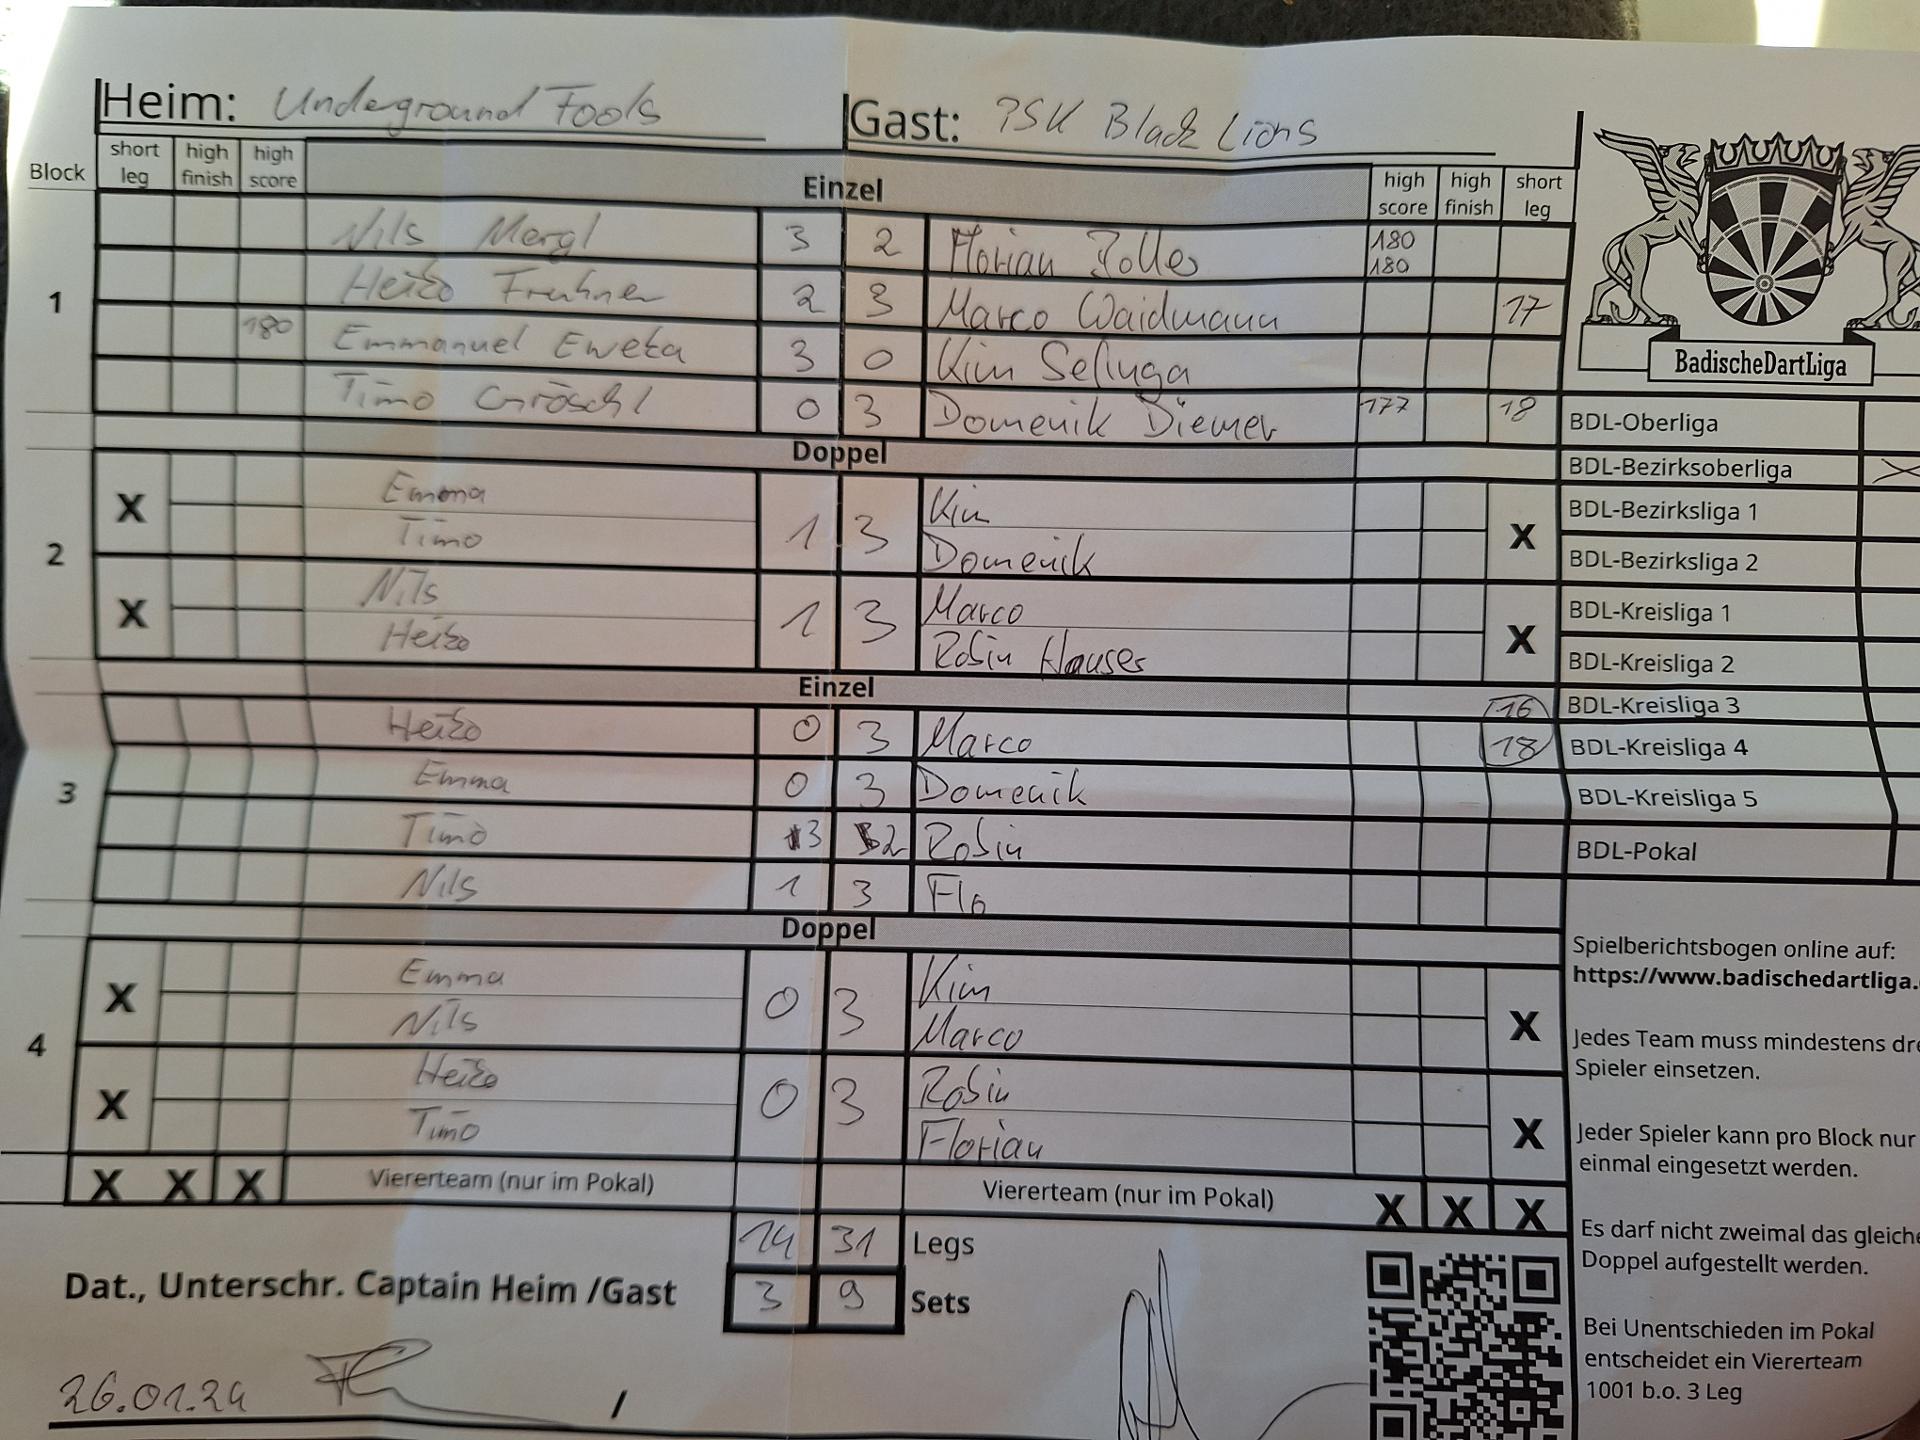 Heim: Underground Fools Gast: PSK Black Lions
Block short leg high finish high score Einzel high score high finish short leg
1
Nils Mergl 3 2 Florian Zoller 180 180
Heiko Fruhner 2 3 Marco Waidmann 17
180 Emmanuel Eweka 3 0 Kim Seluga
Timo Gröschl 0 3 Domenik Diemer 177 18
Doppel
2
X Emma Timo 1 3 Kim Domenik X
X Nils Heiko 1 3 Marco Robin Hauser X
Einzel
3
Heiko 0 3 Marco 16 18
Emma 0 3 Domenik
Timo 3 2 Robin
Nils 1 3 Flo
Doppel
4
X Emma Nils 0 3 Kim Marco X
X Heiko Timo 0 3 Robin Florian X
X X X Viererteam (nur im Pokal) Viererteam (nur im Pokal) X X X
14 31 Legs
3 9 Sets
Dat., Unterschr. Captain Heim /Gast
26.01.24 /
BadischeDartLiga
BDL-Oberliga
BDL-Bezirksoberliga X
BDL-Bezirksliga 1
BDL-Bezirksliga 2
BDL-Kreisliga 1
BDL-Kreisliga 2
BDL-Kreisliga 3
BDL-Kreisliga 4
BDL-Kreisliga 5
BDL-Pokal
Spielberichtsbogen online auf:
https://www.badischedartliga.
Jedes Team muss mindestens
Spieler einsetzen.
Jeder Spieler kann pro Block nur
einmal eingesetzt werden.
Es darf nicht zweimal das gleiche
Doppel aufgestellt werden.
Bei Unentschieden im Pokal
entscheidet ein Viererteam
1001 b.o. 3 Leg